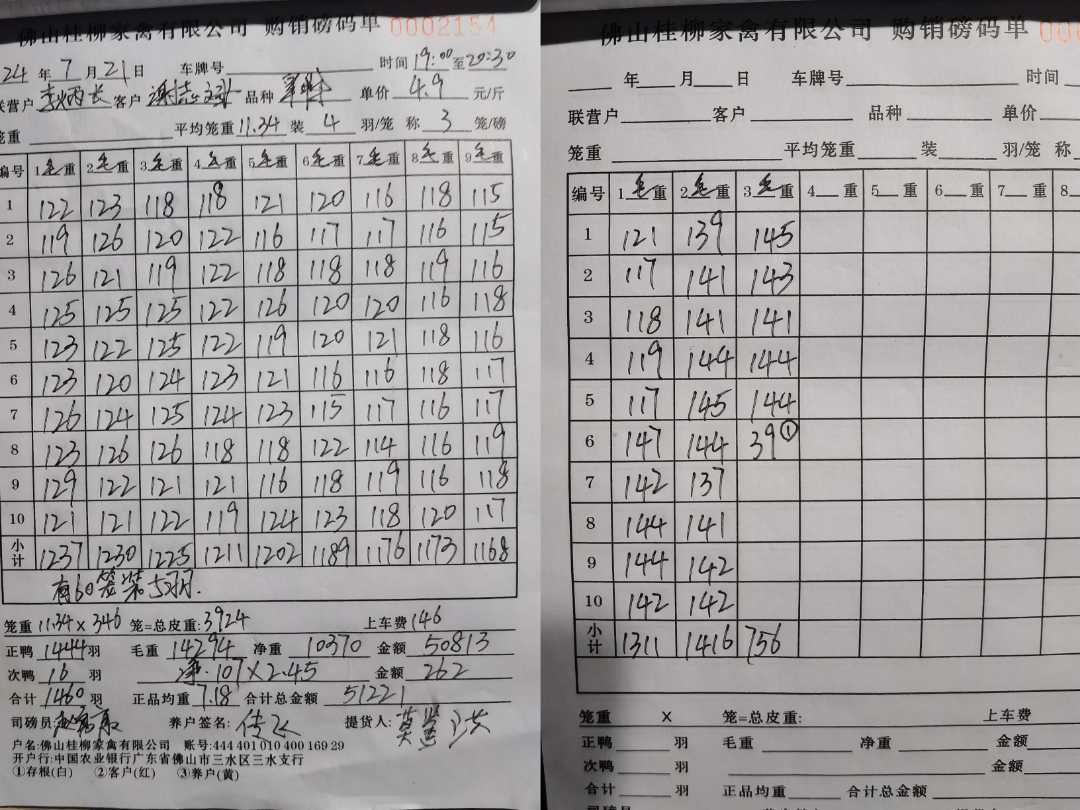 佛山桂柳家禽有限公司 购销磅码单 0002154
24 年 7 月 21 日 车牌号 时间 19:00 至 20:30
联营户 李炳长 客户 品种 单价 4.9 元/斤
笼重 平均笼重 11.34 装 4 羽/笼 称 3 笼/磅
编号 1 毛 重 2 毛 重 3 毛 重 4 毛 重 5 毛 重 6 毛 重 7 毛 重 8 毛 重 9 毛 重
1 122 123 118 118 121 120 116 118 115
2 119 126 120 122 116 117 117 116 115
3 126 121 119 122 118 118 118 119 116
4 125 125 125 122 126 120 120 116 118
5 123 122 125 122 119 120 121 118 116
6 123 120 124 123 121 116 116 118 117
7 126 124 125 124 123 115 117 116 117
8 123 126 126 118 118 122 114 116 119
9 129 122 121 121 116 118 119 116 118
10 121 121 122 119 124 123 118 120 117
小计 1237 1230 1225 1211 1202 1189 1176 1173 1168
有60笼装5羽.
笼重 11.34 × 346 笼=总皮重: 3924 上车费 146
正鸭 1444 羽 毛重 14294 净重 10370 金额 50813
次鸭 16 羽 净.107×2.45 金额 262
合计 1460 羽 正品均重 7.18 合计总金额 51221
司磅员 养户签名: 提货人:
户名:佛山桂柳家禽有限公司 账号:444 401 010 400 169 29
开户行:中国农业银行广东省佛山市三水区三水支行
①存根(白) ②客户(红) ③养户(黄)
佛山桂柳家禽有限公司 购销磅码单 00
年 月 日 车牌号 时间
联营户 客户 品种 单价
笼重 平均笼重 装 羽/笼 称
编号 1 毛 重 2 毛 重 3 毛 重 4 重 5 重 6 重 7 重 8
1 121 139 145
2 117 141 143
3 118 141 141
4 119 144 144
5 117 145 144
6 147 144 39①
7 142 137
8 144 141
9 144 142
10 142 142
小计 1311 1416 756
笼重 × 笼=总皮重: 上车费
正鸭 羽 毛重 净重 金额
次鸭 羽 金额
合计 羽 正品均重 合计总金额